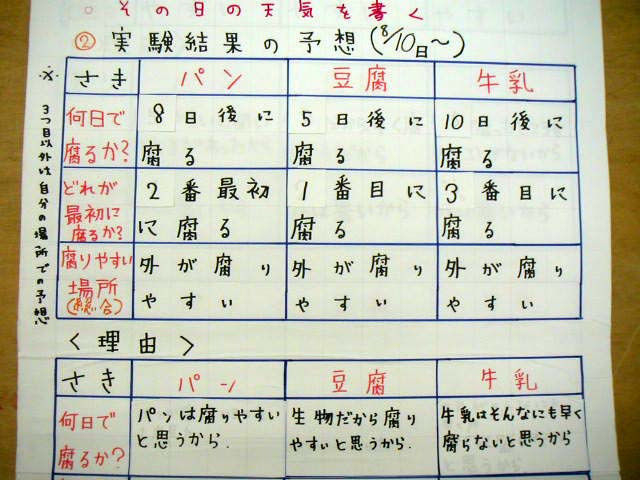 ○その日の天気を書く
②実験結果の予想(8/10日〜)
さき パン 豆腐 牛乳
何日で腐るか? 8日後に腐る 5日後に腐る 10日後に腐る
どれが最初に腐るか? 2番最初に腐る 1番目に腐る 3番目に腐る
腐りやすい場所(総合) 外が腐りやすい 外が腐りやすい 外が腐りやすい
※3つ目以外は自分の場所での予想
<理由>
さき パン 豆腐 牛乳
何日で腐るか? パンは腐りやすいと思うから. 生物だから腐りやすいと思うから. 牛乳はそんなにも早く腐らないと思うから